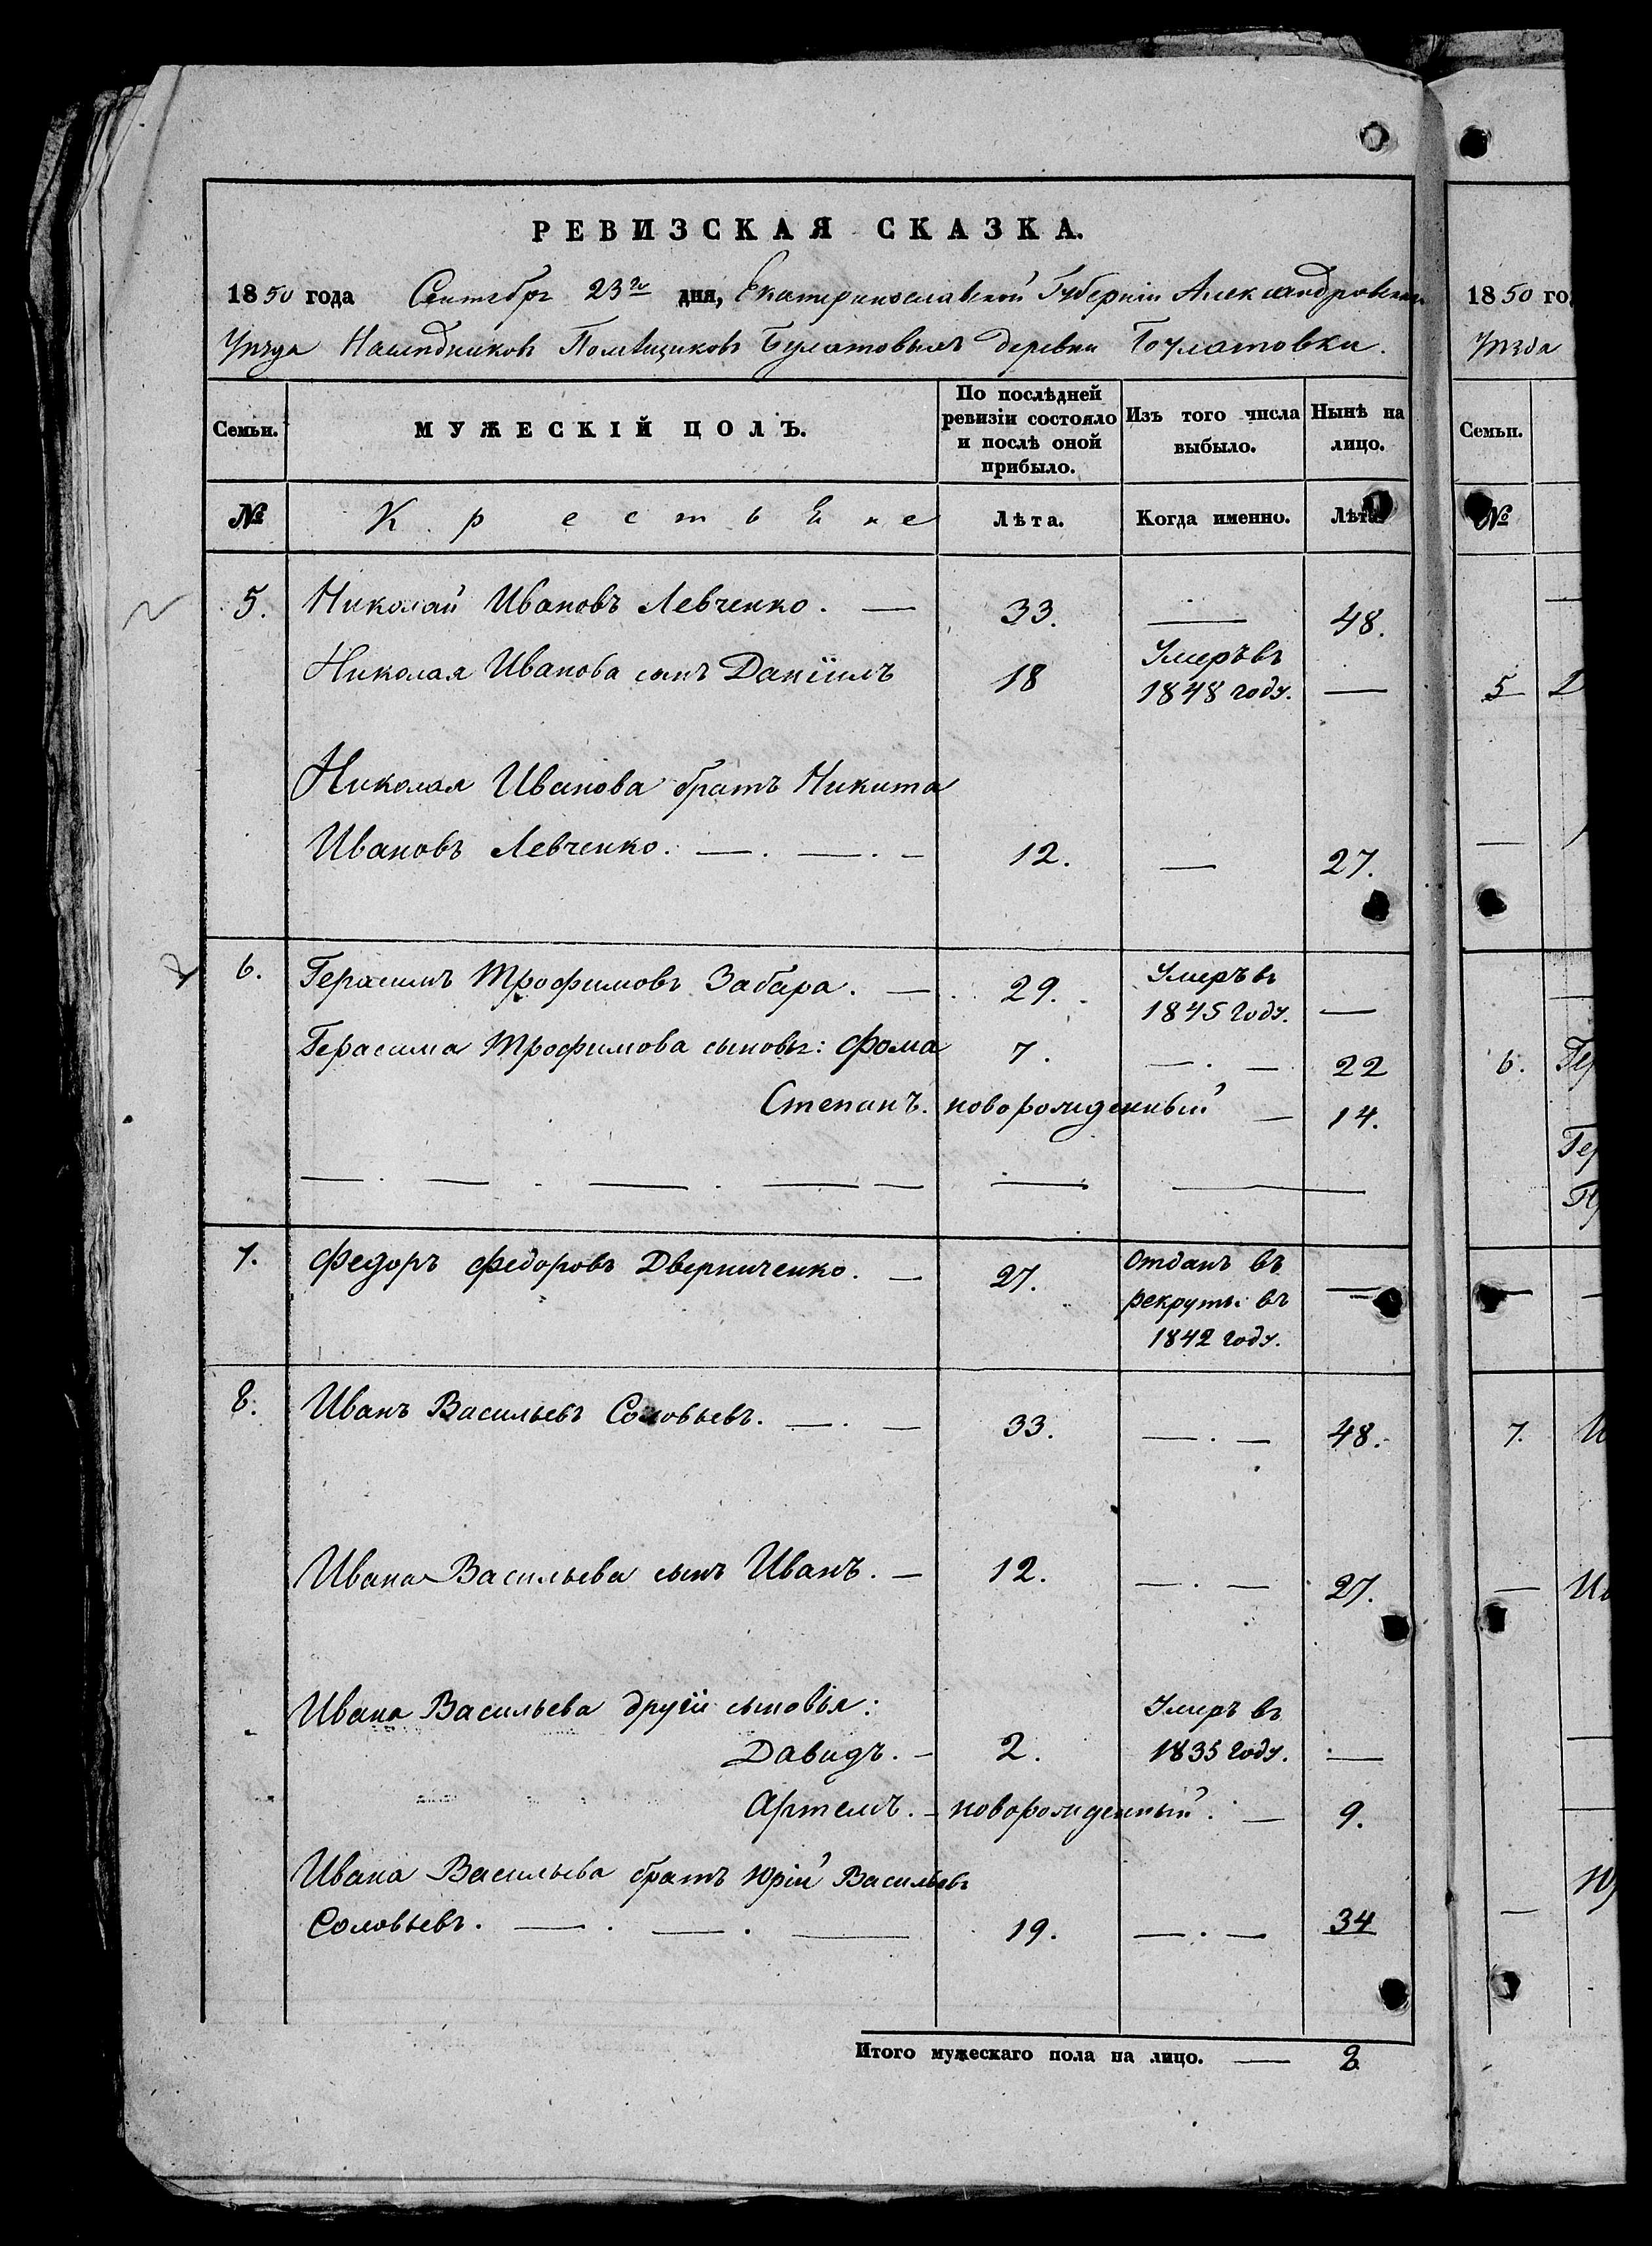 РЕВИЗСКАЯ СКАЗКА.
1850 года Сентября 23го дня, Екатеринославской Губерніи Александровскаго
Уѣзда Наслѣдниковъ Помѣщиковъ Булатовыхъ деревни Булатовки.
Семьи. МУЖЕСКІЙ ПОЛЪ. По послѣдней ревизіи состояло и послѣ оной прибыло. Изъ того числа выбыло. Нынѣ на лицо.
№ Крестьяне Лѣта. Когда именно. Лѣта.
5. Николай Ивановъ Левченко. — 33. — 48.
Николая Иванова сынъ Даніилъ 18 Умеръ въ 1848 году. —
Николая Иванова братъ Никита
Ивановъ Левченко. — . — . — 12. — 27.
6. Герасимъ Трофимовъ Забара. — 29. Умеръ въ 1845 году. —
Герасима Трофимова сыновья: Фома 7. — . — 22
Степанъ. новорожденный — 14.
7. Федоръ Федоровъ Дверниченко. — 27. Отданъ въ рекруты въ 1842 году. —
8. Иванъ Васильевъ Соловьевъ. — . — 33. — . — 48.
Ивана Васильева сынъ Иванъ. — 12. — . — 27.
Ивана Васильева другіи сыновья:
Давидъ. — 2. Умеръ въ 1835 году. —
Артемъ. — новорожденный. — 9.
Ивана Васильева братъ Юрій Васильевъ
Соловьевъ. — . — . — 19. — . — 34
Итого мужескаго пола на лицо. — 2
1850 го
Уѣзда
Семьи.
№
5
6. Гер
Гер
7. И
Ив
Ю